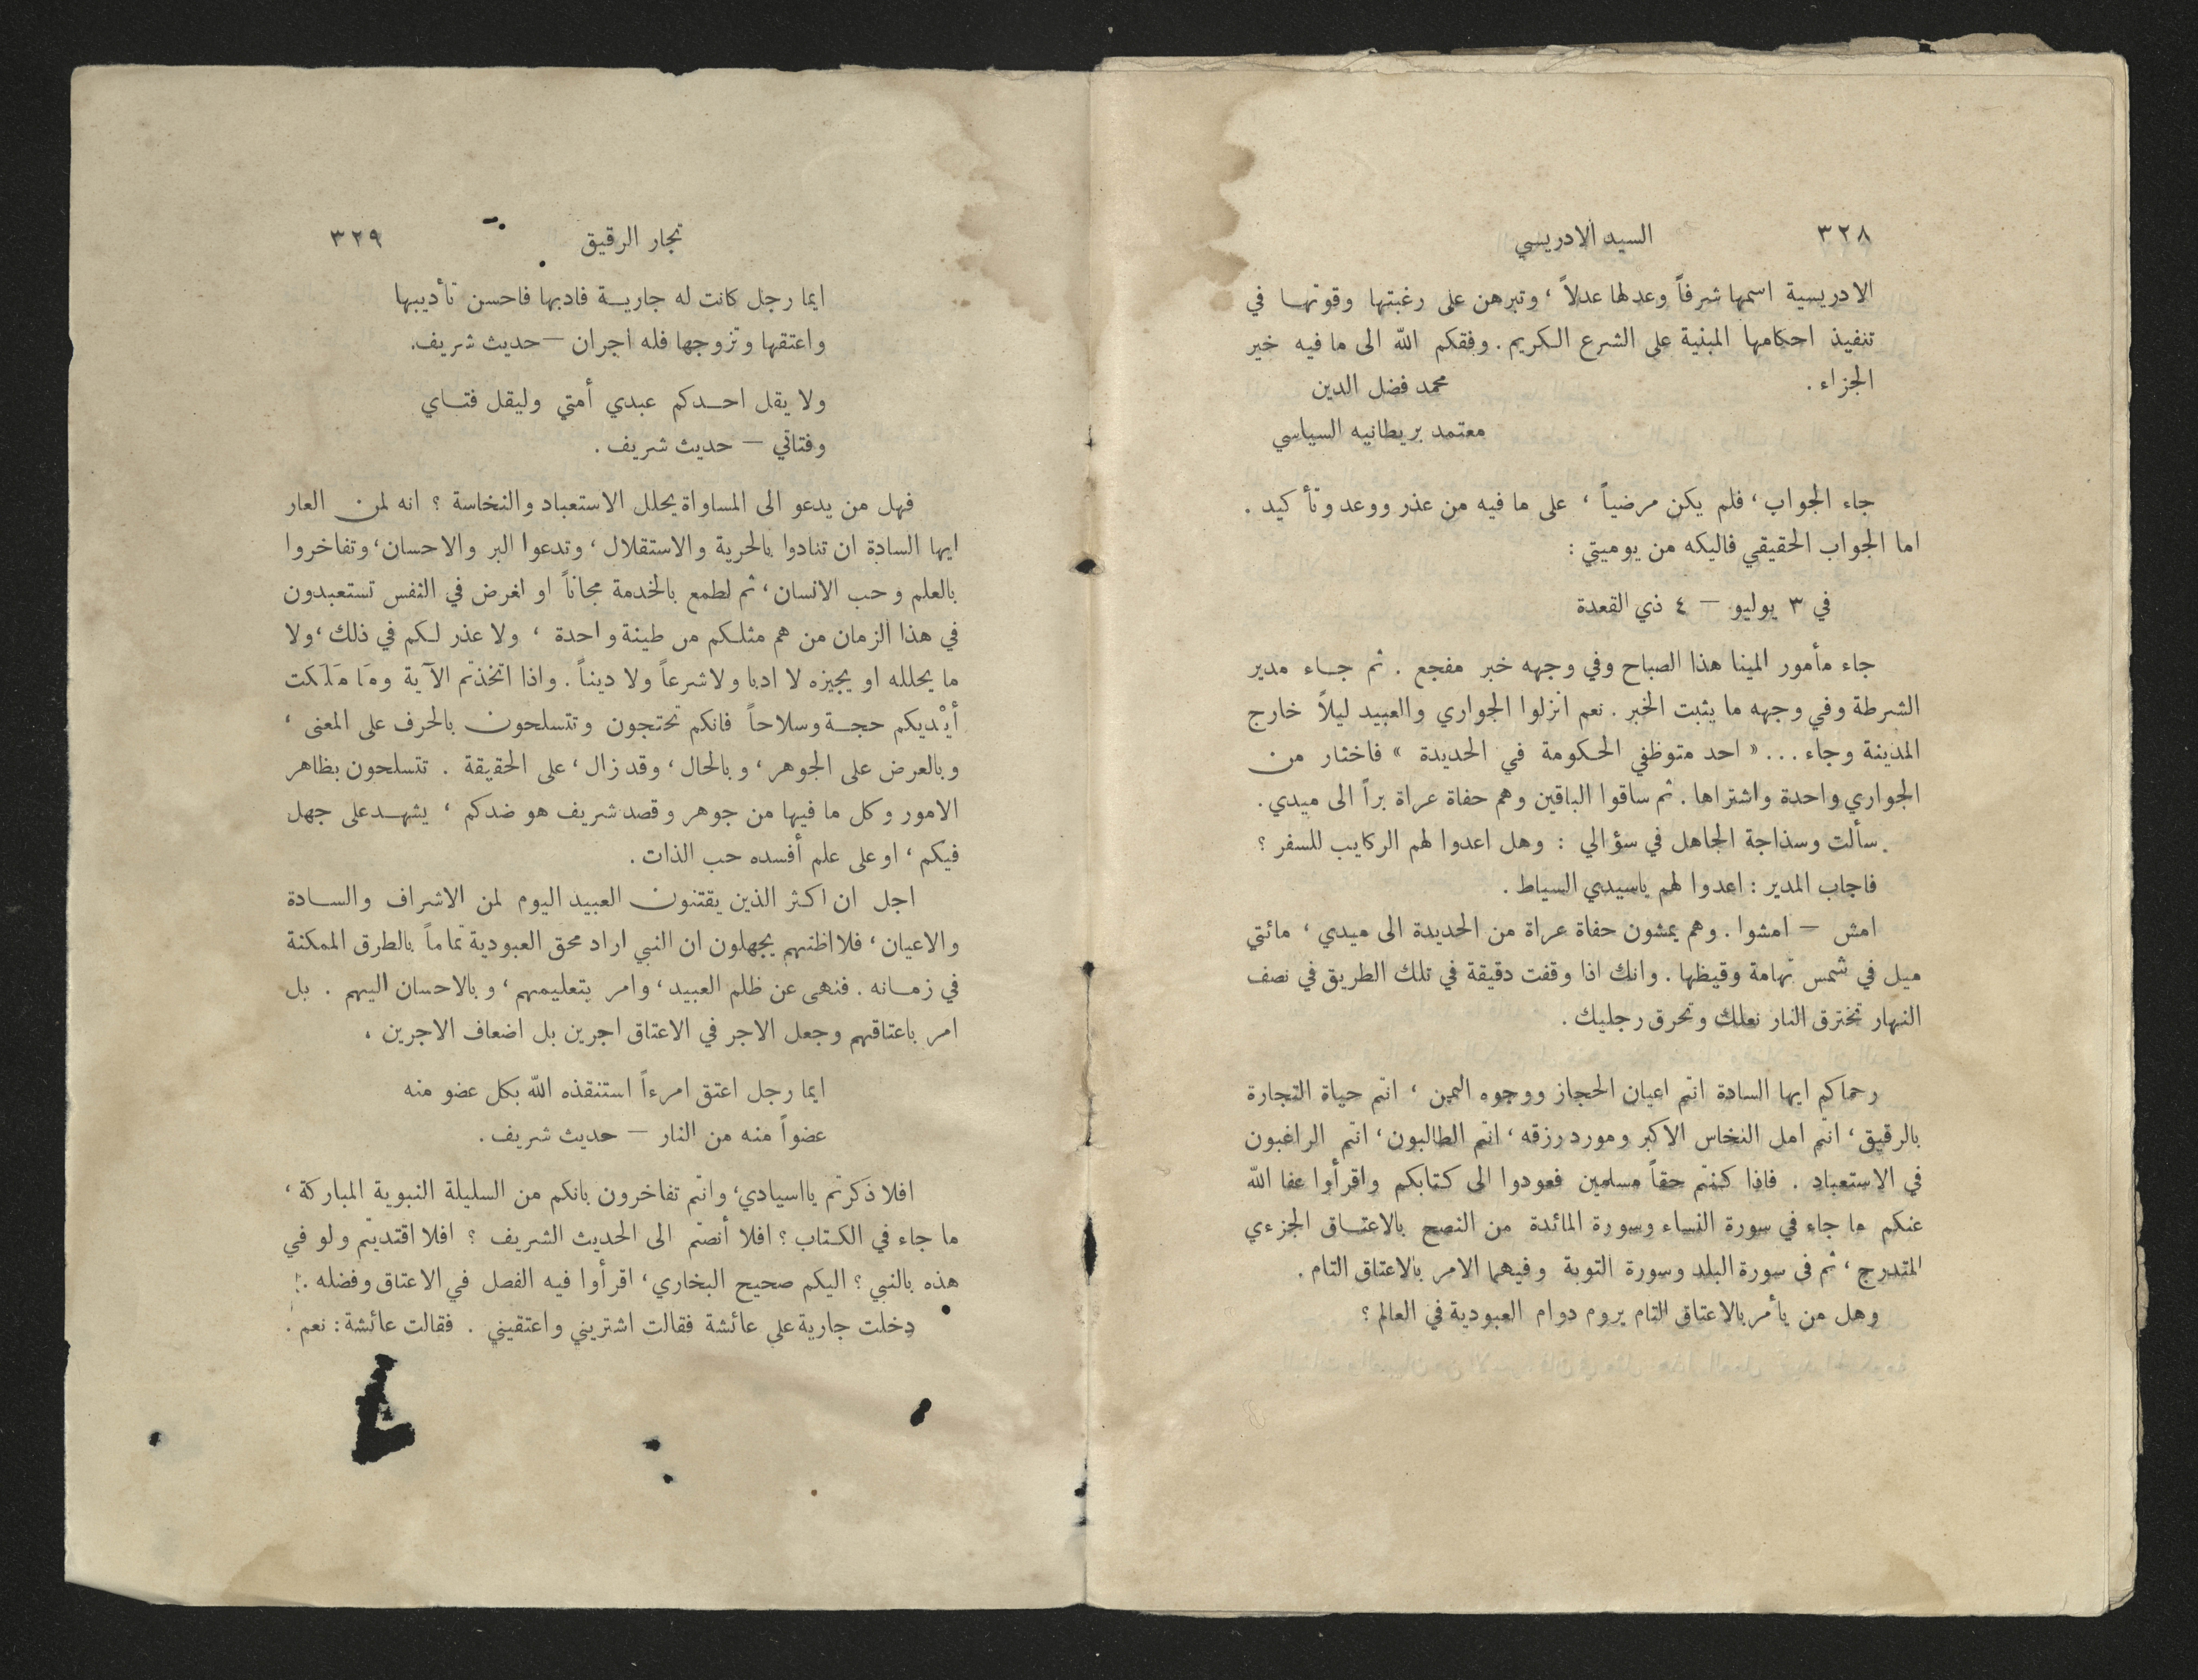 ٣٢٨ السيد الادريسي
الادريسية اسمها شرفاً وعدلها عدلاً ، وتبرهن على رغبتها وقوتها في
تنفيذ احكامها المبنية على الشرع الكريم . وفقكم الله الى ما فيه خير
الجزاء . محمد فضل الدين
معتمد بريطانيه السياسي
جاء الجواب ، فلم يكن مرضياً ، على ما فيه من عذر ووعد وتأكيد .
اما الجواب الحقيقي فاليكه من يوميتي :
في ٣ يوليو — ٤ ذي القعدة
جاء مأمور المينا هذا الصباح وفي وجهه خبر مفجع . ثم جاء مدير
الشرطة وفي وجهه ما يثبت الخبر . نعم انزلوا الجواري والعبيد ليلاً خارج
المدينة وجاء ... « احد متوظفي الحكومة في الحديدة » فاختار من
الجواري واحدة واشتراها . ثم ساقوا الباقين وهم حفاة عراة براً الى ميدي .
سألت وسذاجة الجاهل في سؤالي : وهل اعدوا لهم الركايب للسفر ؟
فاجاب المدير : اعدوا لهم ياسيدي السياط .
امش — امشوا . وهم يمشون حفاة عراة من الحديدة الى ميدي ، مائتي
ميل في شمس تهامة وقيظها . وانك اذا وقفت دقيقة في تلك الطريق في نصف
النهار تخترق النار نعلك وتحرق رجليك .
رحماكم ايها السادة انتم اعيان الحجاز ووجوه اليمن ، انتم حياة التجارة
بالرقيق ، انتم امل النخاس الاكبر ومورد رزقه ، انتم الطالبون ، انتم الراغبون
في الاستعباد . فاذا كنتم حقاً مسلمين فعودوا الى كتابكم واقرأوا عفا الله
عنكم ما جاء في سورة النساء وسورة المائدة من النصح بالاعتاق الجزءي
المتدرج ، ثم في سورة البلد وسورة التوبة وفيهما الامر بالاعتاق التام .
وهل من يأمر بالاعتاق التام يروم دوام العبودية في العالم ؟
تجار الرقيق ٣٢٩
ايما رجل كانت له جارية فادبها فاحسن تأديبها
واعتقها وتزوجها فله اجران — حديث شريف.
ولا يقل احدكم عبدي أمتي وليقل فتاي
وفتاتي — حديث شريف .
فهل من يدعو الى المساواة يحلل الاستعباد والنخاسة ؟ انه لمن العار
ايها السادة ان تنادوا بالحرية والاستقلال ، وتدعوا البر والاحسان، وتفاخروا
بالعلم وحب الانسان ، ثم لطمع بالخدمة مجاناً او لغرض في النفس تستعبدون
في هذا الزمان من هم مثلكم من طينة واحدة ، ولا عذر لكم في ذلك ، ولا
ما يحلله او يجيزه لا ادبا ولا شرعاً ولا ديناً . واذا اتخذتم الآية ومَا مَلَكت
أيْديكم حجة وسلاحاً فانكم تحتجون وتتسلحون بالحرف على المعنى ،
وبالعرض على الجوهر ، وبالحال ، وقد زال ، على الحقيقة . تتسلحون بظاهر
الامور وكل ما فيها من جوهر وقصد شريف هو ضدكم ، يشهد على جهل
فيكم ، او على علم أفسده حب الذات .
اجل ان اكثر الذين يقتنون العبيد اليوم لمن الاشراف والسادة
والاعيان ، فلا اظنهم يجهلون ان النبي اراد محق العبودية تماماً بالطرق الممكنة
في زمانه . فنهى عن ظلم العبيد ، وامر بتعليمهم ، وبالاحسان اليهم . بل
امر باعتاقهم وجعل الاجر في الاعتاق اجرين بل اضعاف الاجرين ،
ايما رجل اعتق امرءاً استنقذه الله بكل عضو منه
عضواً منه من النار — حديث شريف .
افلا ذكرتم يااسيادي، وانتم تفاخرون بانكم من السليلة النبوية المباركة ،
ما جاء في الكتاب ؟ افلا أنصتم الى الحديث الشريف ؟ افلا اقتديتم ولو في
هذه بالنبي ؟ اليكم صحيح البخاري ، اقرأوا فيه الفصل في الاعتاق وفضله .
دخلت جارية على عائشة فقالت اشتريني واعتقيني . فقالت عائشة : نعم .